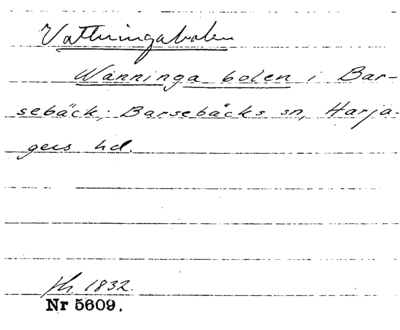 Vattningabolen
Wanninga bolen i Bar-
sebäck; Barsebäcks sn, Harja-
gers hd.
1832.
Nr 5609.